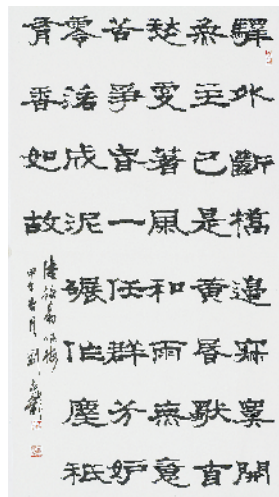 驛外斷橋邊寂寞開
無主已是黃昏獨自
愁更著風和雨無意
苦爭春一任群芳妒
零落成泥碾作塵祇
有香如故
陸放翁詠梅
甲午春月劉